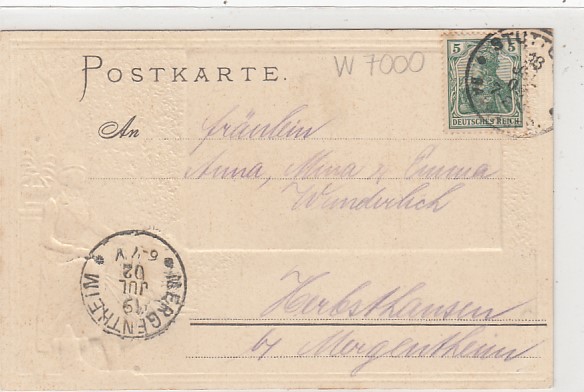 W 7000
POSTKARTE.
5 5
DEUTSCHES REICH
STUTTG
An Fräulein
Anna, Mina & Emma
Wunderlich
Herbsthausen
by Mergentheim
* MERGENTHEIM *
19
JUL
02
6-7 V